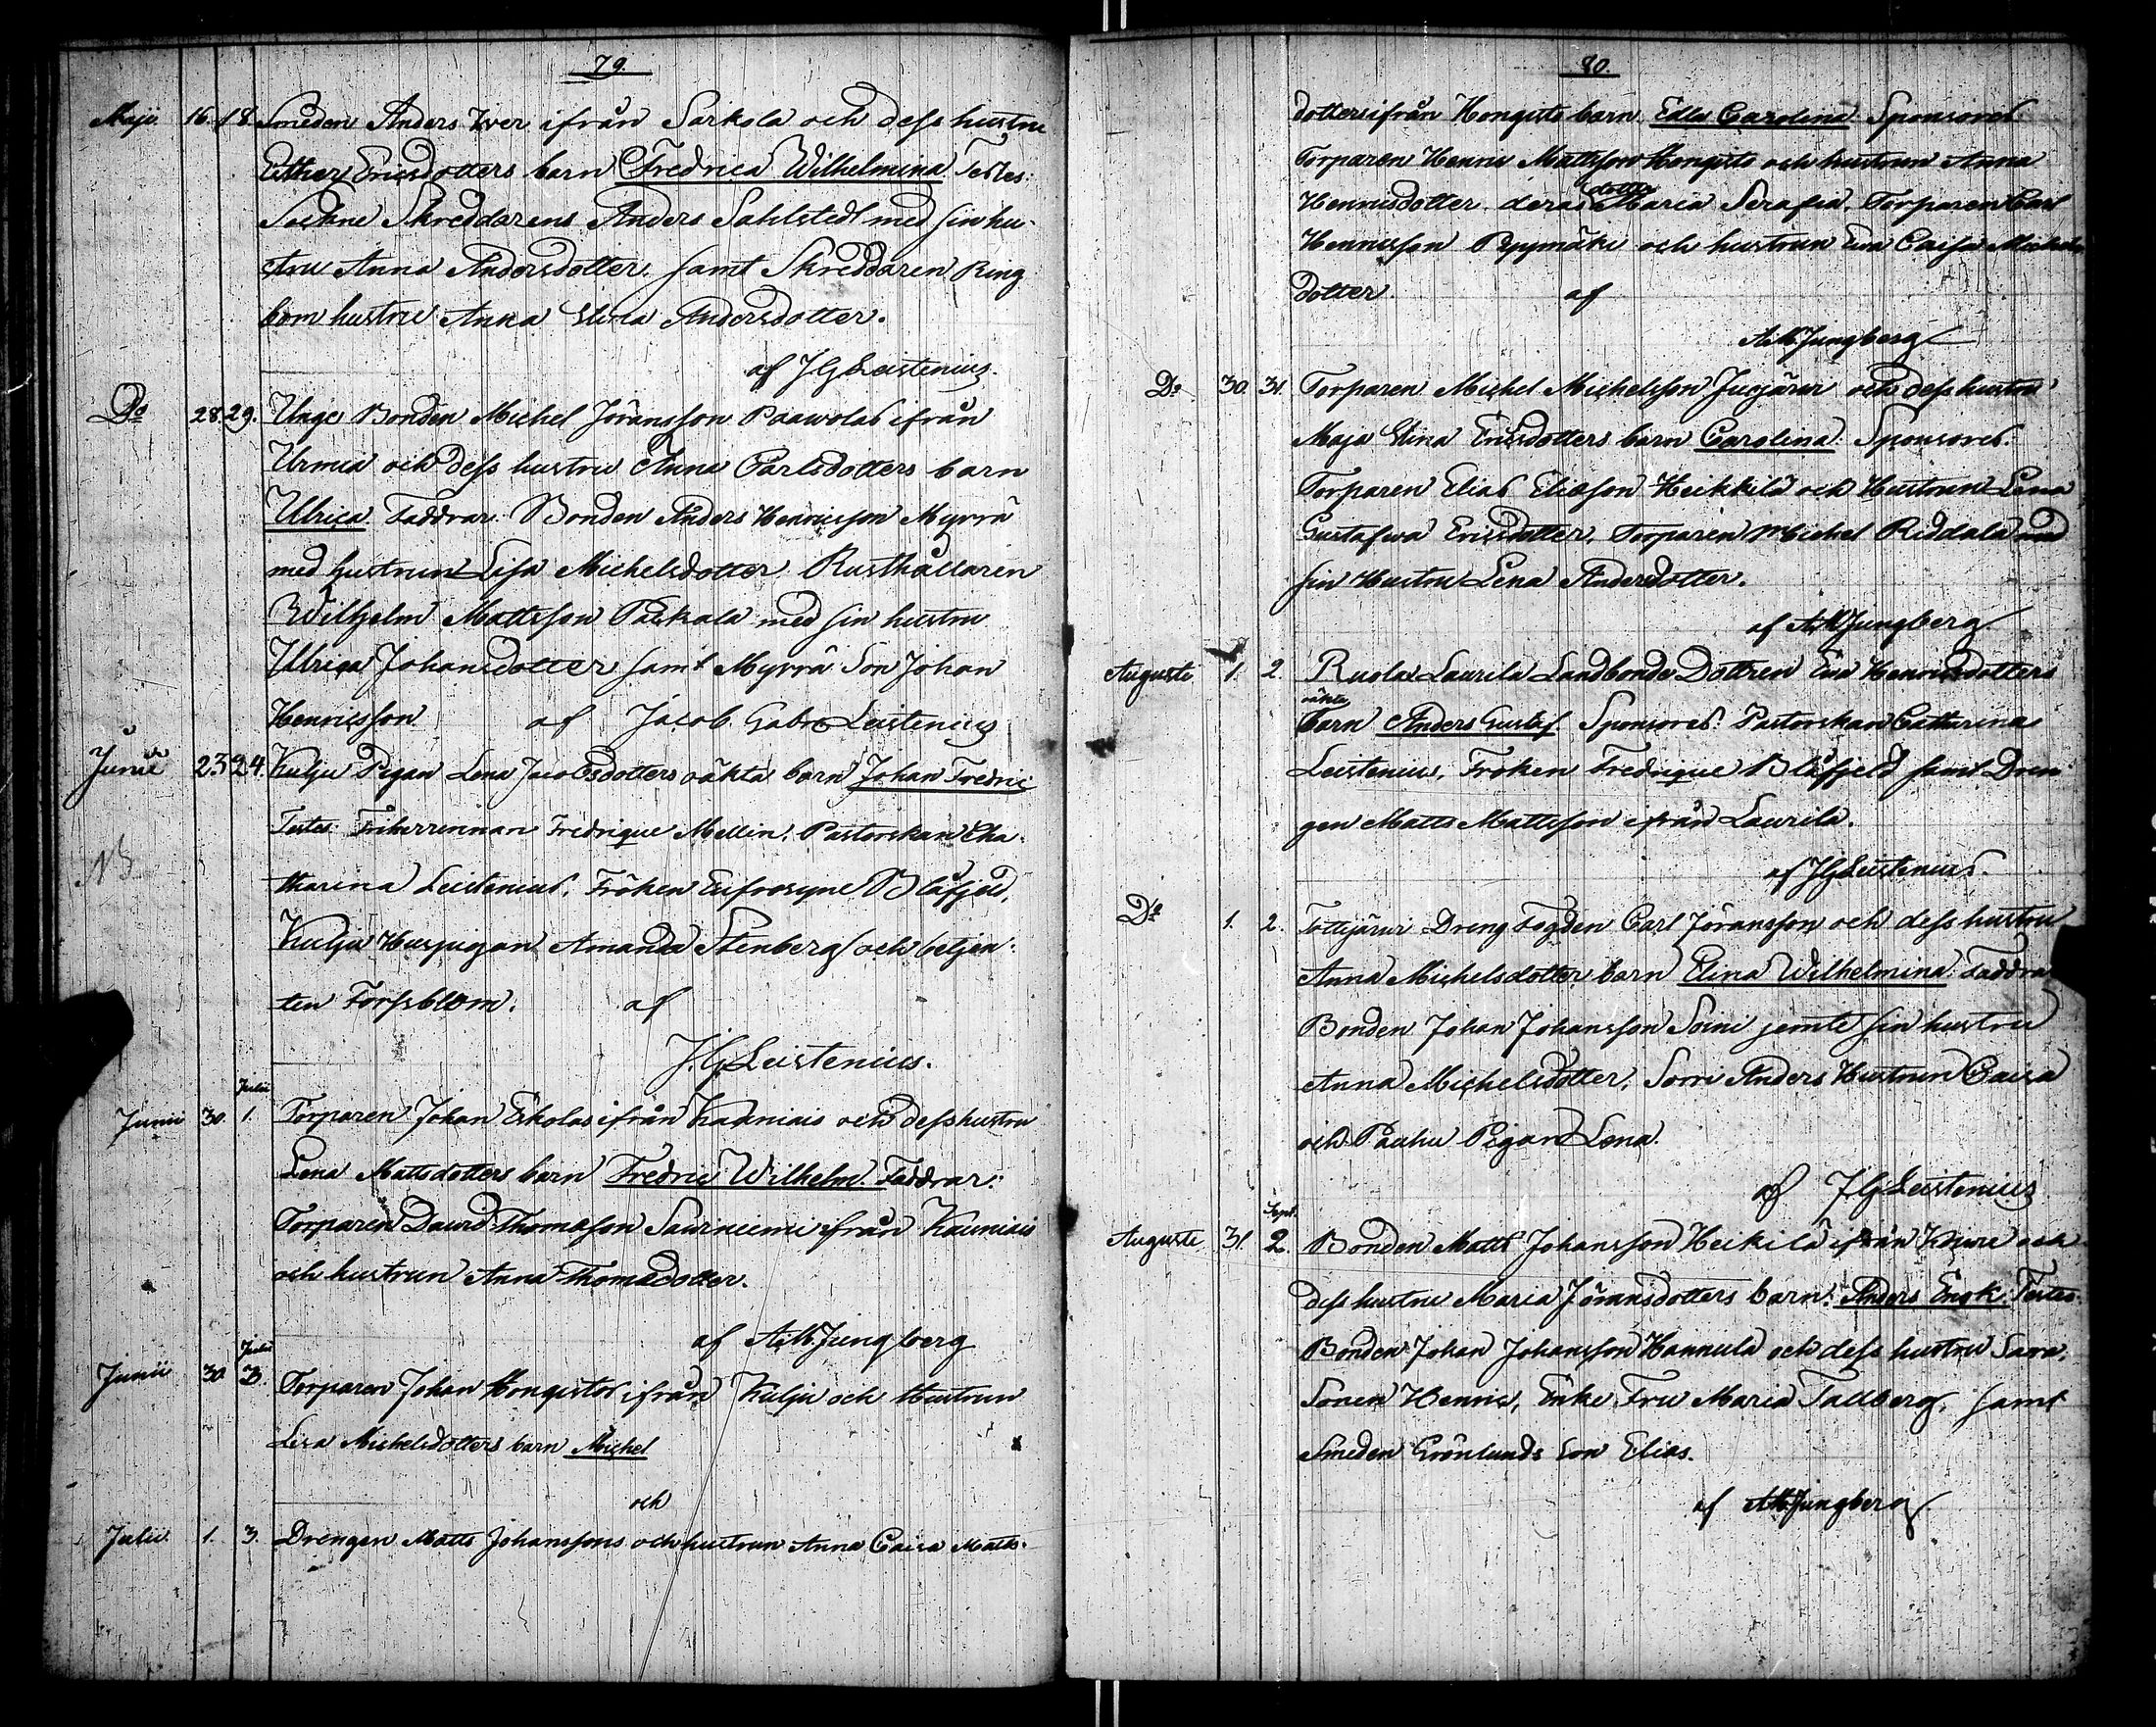 79.
Maji 16. 18. Smeden Anders Iver ifrån Sarkola och dess hustru
Esther Ericsdotters barn Fredrica Wilhelmina Testes:
Sockne Skreddarens Anders Sahlstedt med sin hu-
stru Anna Andersdotter, samt Skreddaren Ring
bom hustru Anna Stina Andersdotter.
af J G Leistenius.
Do 28. 29. Unge Bonden Michel Jöransson Paawolas ifrån
Urmia och dess hustru Anna Carlsdotters barn
Ulrica. Faddrar: Bonden Anders Henricsson Myrrä
med hustrun Lisa Michelsdotter. Rusthållaren
Wilhelm Mattsson Päckala med sin hustru
Ulrica Johansdotter samt Myrrä Son Johan
Henricsson af Jacob Gabr Leistenius
Junii 23 24. Kulju Pigan Lena Jacobsdotters oäkta barn Johan Fredric
Testes Friherrinnan Fredrique Mellin, Pastorskan Cha-
NB
tharina Leistenius, Fröken Eufrosyne Blåfjeld,
Kulju Huspigan Amanda Stenberg och betjen-
ten Forssblom. af
J. G. Leistenius.
Julii
Junii 30. 1. Torparen Johan Eskolas ifrån Kauniais och dess hustru
Lena Mattsdotters barn Fredric Wilhelm. Faddrar:
Torparen David Thomasson Saurniemi ifrån Kauniais
och hustrun Anna Thomasdotter.
af A. M. Jungberg
Julii
Junii 30. 3. Torparen Johan Hongistos ifrån Kulju och Hustrun
Lisa Michelsdotters barn Michel
och
Julii 1. 3. Drengen Matts Johanssons och hustrun Anna Caisa Matts-
80.
dotters ifrån Hongisto barn Edla Carolina Sponsores
Torparen Henric Mattsson Hongisto och hustrun Anna
dotter
Henricsdotter deras Maria Serafia, Torparen Carl
Henricsson Pyymäki och hustrun Eva Caisa Michels
dotter. af
A. M. Jungberg
Do 30. 31. Torparen Michel Michelsson Jucjärvi och dess hustru
Maja Stina Ericsdotters barn Carolina. Sponsores.
Torparen Elias Eliasson Heikkilä och Hustrun Lena
Gustafwa Ericsdotter, Torparen Michel Riddala med
sin Hustru Lena Andersdotter.
af A. M. Jungberg
Augusti 1. 2. Ruolax Laurila Landbonde Dottren Eva Henricsdotters
oäkta
barn Anders Gustaf. Sponsores. Pastorskan Catharina
Leistenius, Fröken Fredrique Blåfjeld samt Dren
gen Matts Mattsson ifrån Laurila.
af J G Leistenius.
Do 1. 2. Tottijärvi Dreng Fogden Carl Jöransson och dess hustru
Anna Michelsdotter barn Elina Wilhelmina. Faddra
Bonden Johan Johansson Sorri jemte sin hustru
Anna Michelsdotter, Sorri Anders Hustrun Caisa
och Pauhu Pigan Lena.
af J G Leistenius
Sept.
Augusti 31. 2 Bonden Matts Johansson Heikilä ifrån Knive och
dess hustru Maria Jöransdotters barn. Anders Enok. Testes.
Bonden Johan Johansson Hannula och dess hustru Sara,
Sonen Henric, Enke Fru Maria Tallberg, samt
Smeden Grönlunds son Elias.
af A M Jungberg